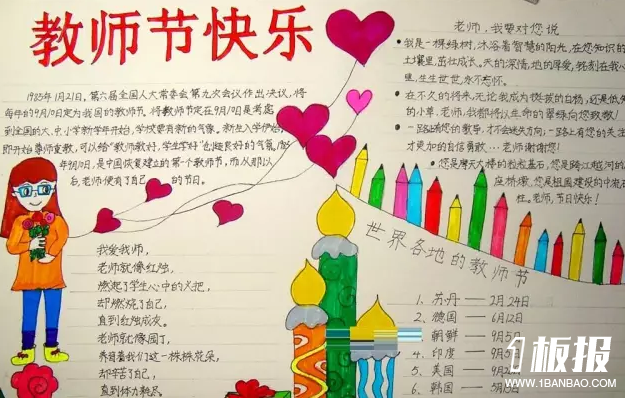 教师节快乐
1985年1月21日,第六届全国人大常委会第九次会议作出决议,将
每年的9月10日定为我国的教师节。将教师节定在9月10日是考虑
到全国的大、中小学新学年开始,学校要有新的气象。新生入学伊始,
即开始尊师重教,可以给"教师教好,学生学好"创造良好的气氛。
年9月10日,是中国恢复建立的第一个教师节,而从那以
后,老师便有了自己的节日。
老师,我要对您说
我是一棵绿树,沐浴着智慧的阳光,在您知识的
土壤里,茁壮成长。天的深情,地的厚爱,铭刻在我心
里,生生世世,永不忘怀。
在不久的将来,无论我成为挺拔的白杨,还是低矮
的小草,老师,我都将以生命的翠绿向您致敬!
一路上有您的教导,才不会迷失方向,一路上有您的关注
才更加的自信勇敢…老师谢谢您!
您是摩天大楼的粒粒基石,您是跨江越河的
座桥墩,您是祖国建设的中流石
柱。老师,节日快乐!
我爱我师,
老师就像红烛,
燃起了学生心中的火把,
却燃烧了自己,
直到红烛成灰。
老师就像园丁,
秀育着我们这一株株花朵,
却辛苦了自己,
直到体力熬尽。
世界各地的教师节
1、苏丹——2月24日
2、德国——6月12日
朝鲜——9月5日
4、印度——9月5日
5、美国——9月2
6、韩国——5月15日
1板报
WWW.1BANBAO.COM